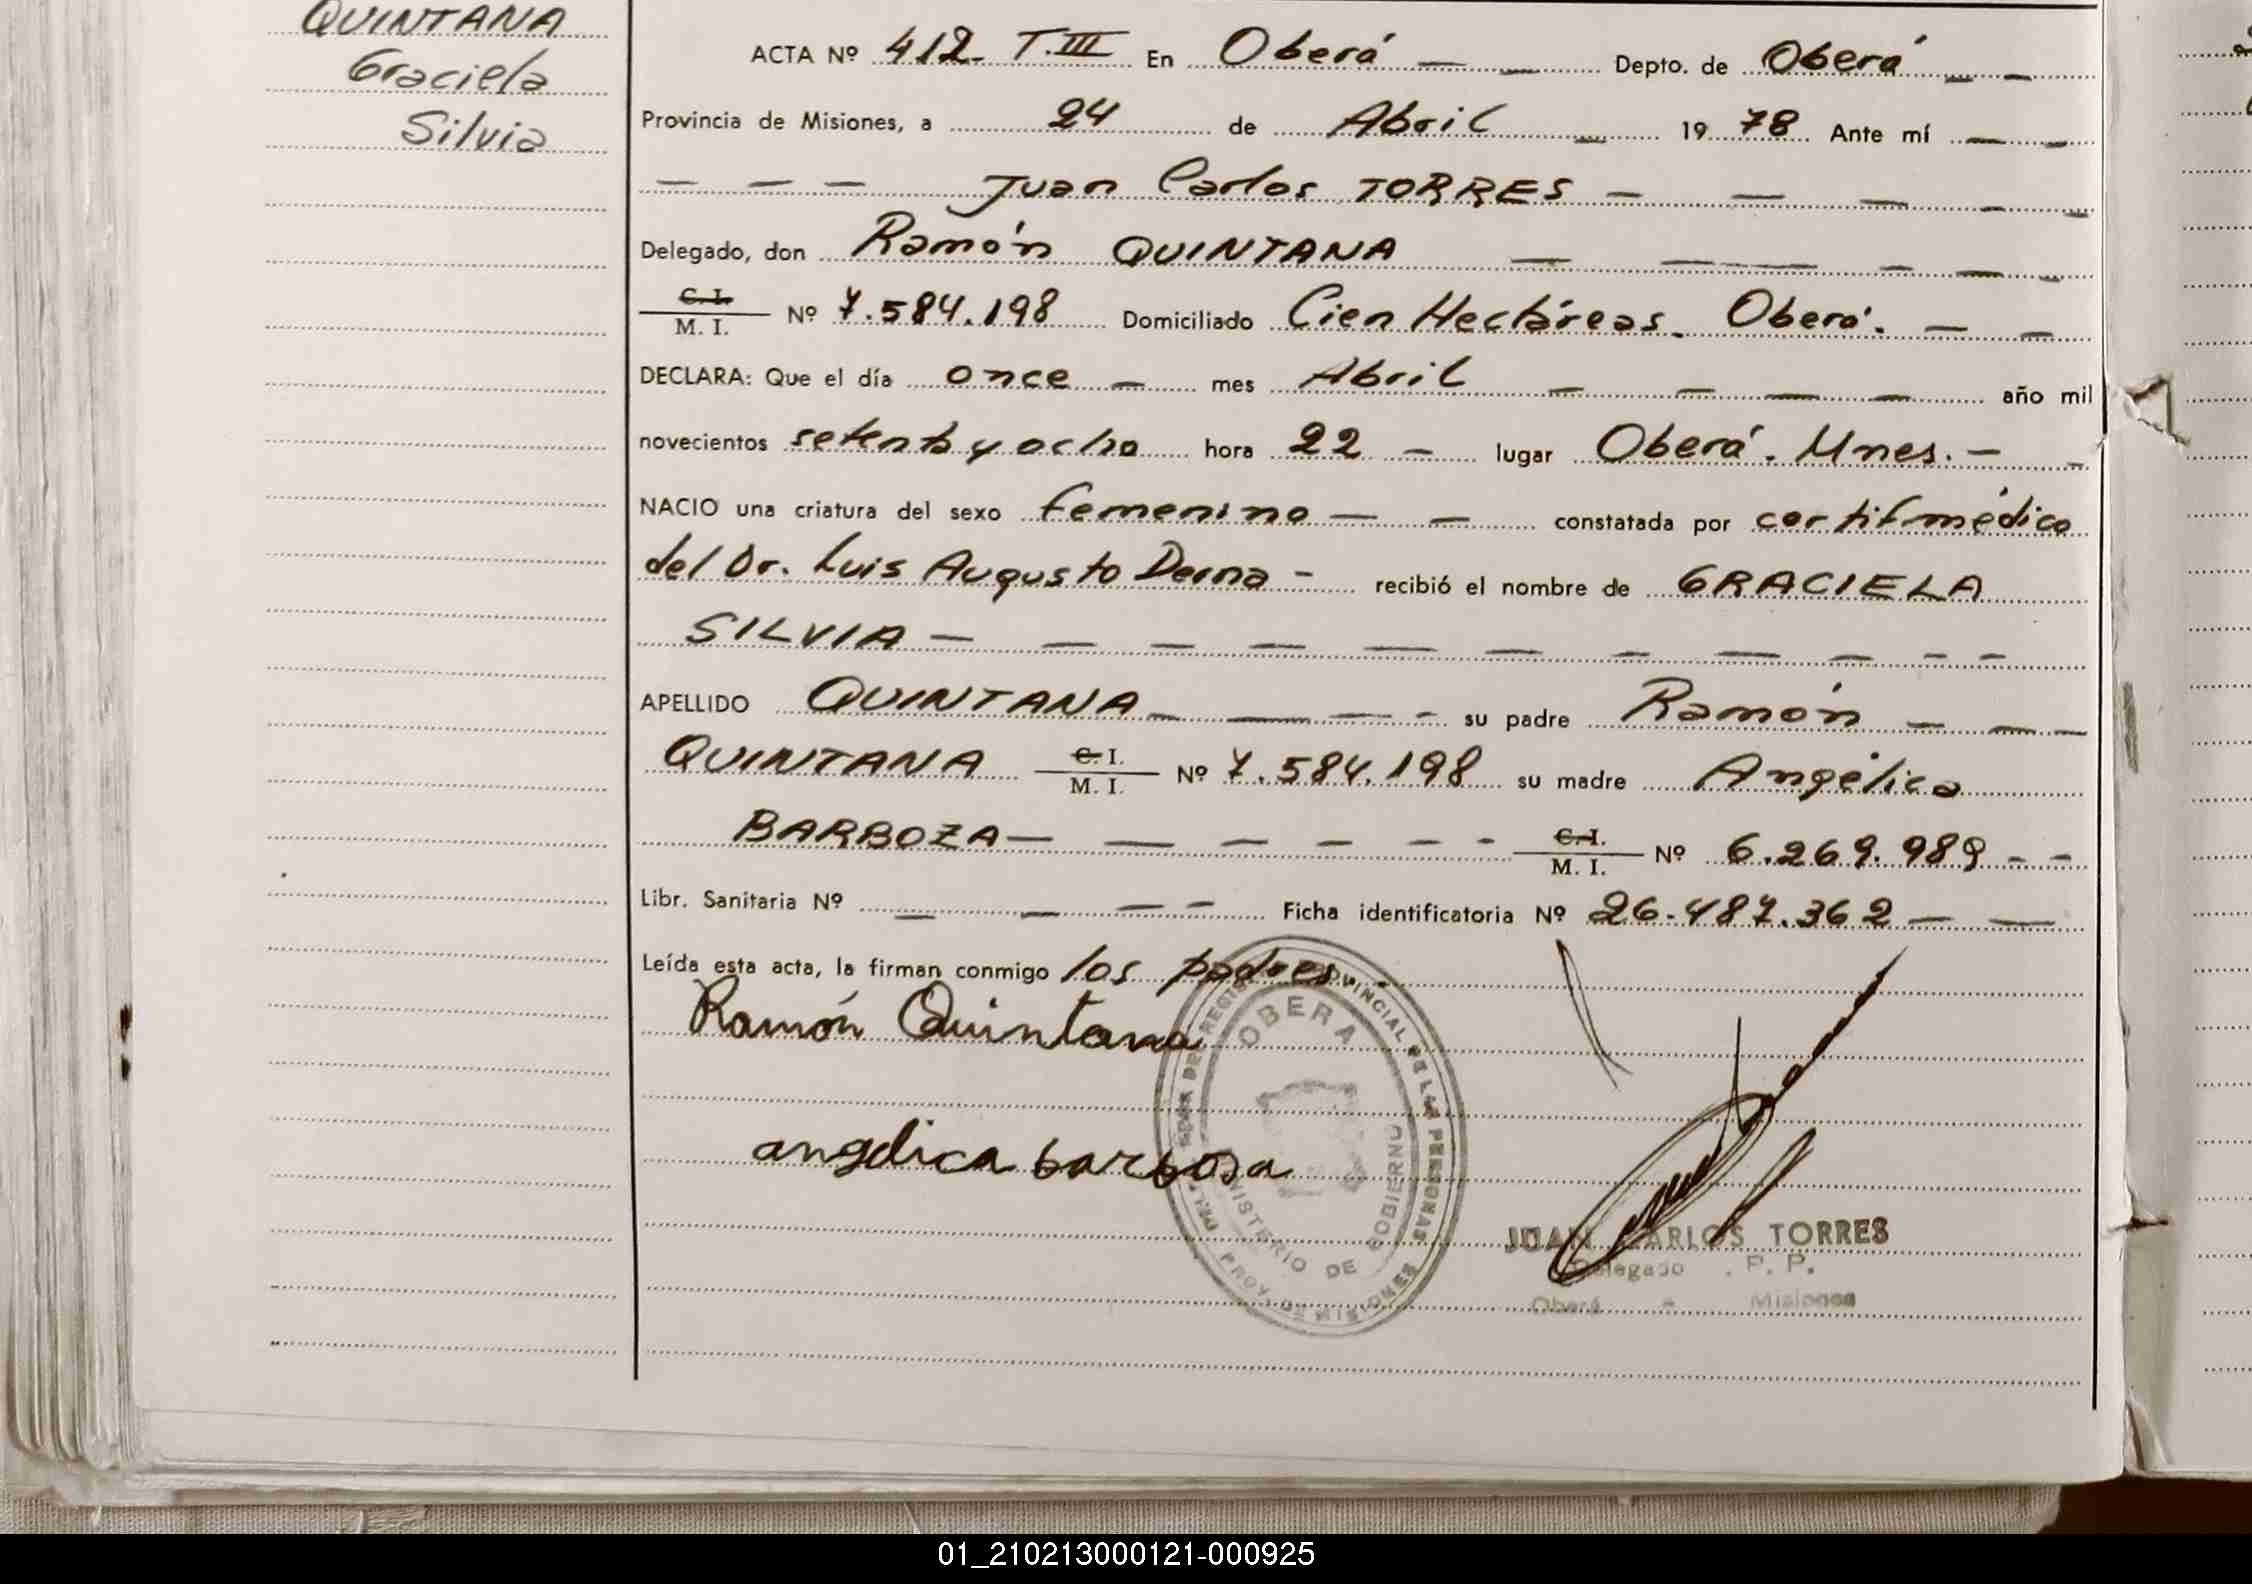 QUINTANA
Graciela
Silvia
ACTA Nº 412- T.III En Oberá — — Depto. de Oberá — —
Provincia de Misiones, a 24 de Abril — 1978 Ante mí — —
— — — Juan Carlos TORRES — — — — —
Delegado, don Ramón QUINTANA — — — — — —
C.I. / M. I. Nº 7.584.198 Domiciliado Cien Hectáreas. Oberá. — —
DECLARA: Que el día once — mes Abril — — — — año mil
novecientos setenta y ocho hora 22 — lugar Oberá. Mnes. — -
NACIO una criatura del sexo femenino — — constatada por certif médico
del Dr. Luis Augusto Derna - recibió el nombre de GRACIELA
SILVIA — — — — — — — — — - -
APELLIDO QUINTANA — — — - su padre Ramón — — —
QUINTANA C.I. / M. I. Nº 7.584.198 su madre Angélica
BARBOZA — — — — - - - C.I. / M. I. Nº 6.269.989 - -
Libr. Sanitaria Nº — — — - Ficha identificatoria Nº 26.487.362 — —
Leída esta acta, la firman conmigo los padres. -
Ramón Quintana
angelica barbosa
OBERA
REGISTRO PROVINCIAL DE LAS PERSONAS
MINISTERIO DE GOBIERNO
PROV. DE MISIONES
JUAN CARLOS TORRES
Delegado . P. P.
Oberá - Misiones
01_210213000121-000925